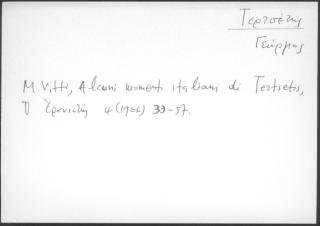 Τερτσέτης
Γεώργιος
M. Vitti, Alcuni momenti italiani di Tertsetis,
4 (1966) 30-57.